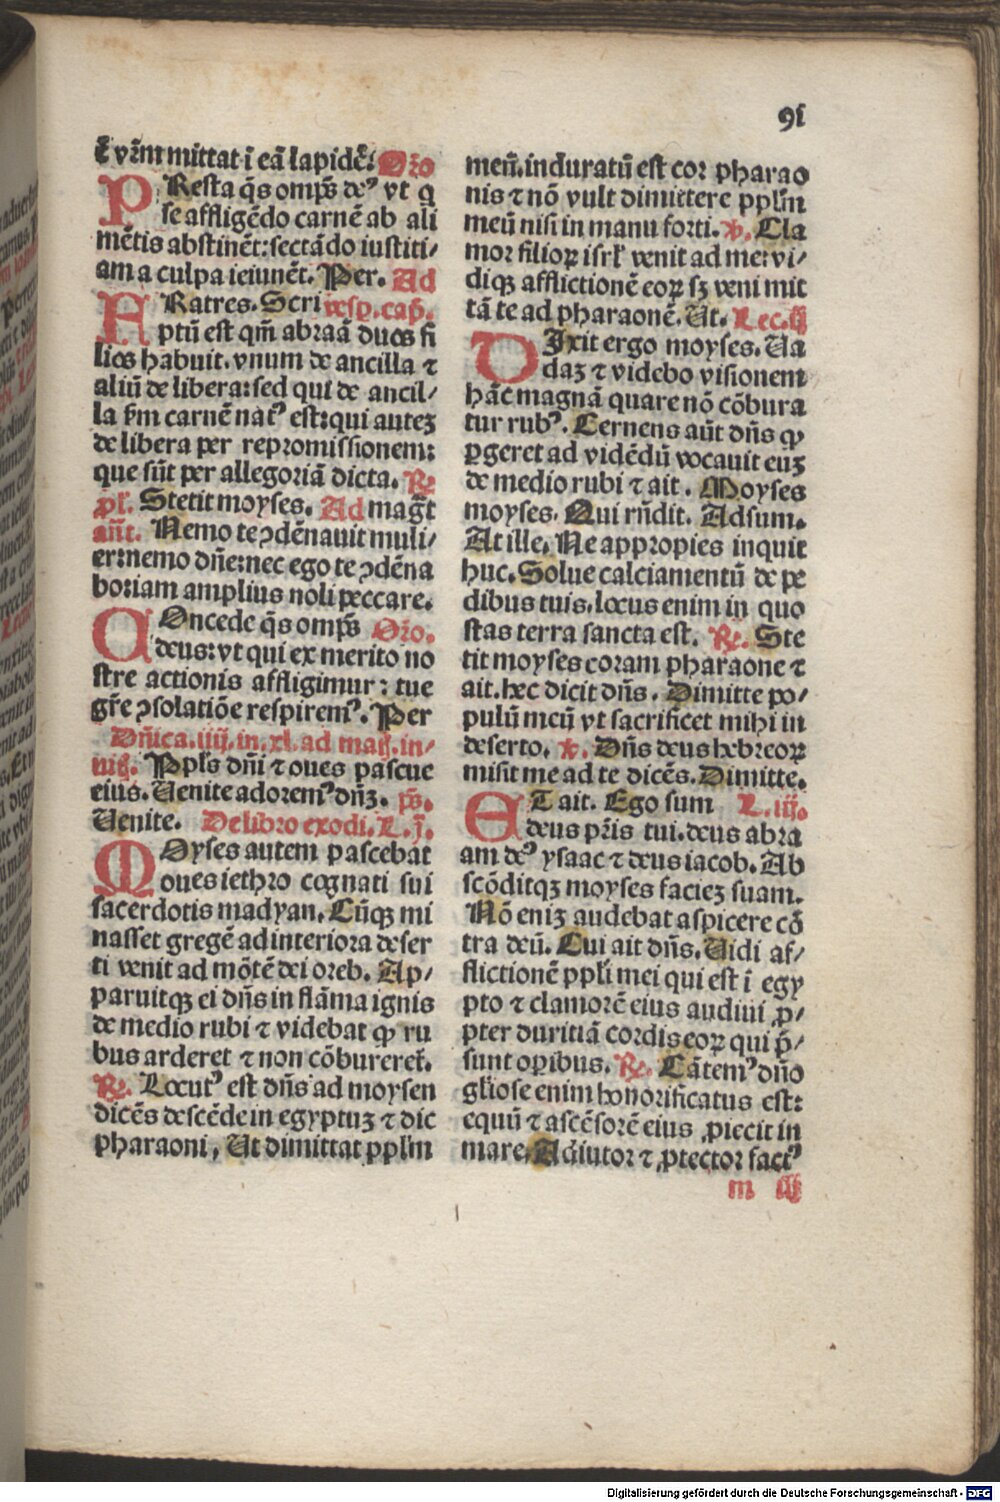 91
ē vr̄m mittat ī eā lapidē: Oro
PResta q̄s omp̄s deꝰ vt q
se affligēdo carnē ab ali
mētis abstinēt: sectādo iustiti/
am a culpa ieiunēt. Per. Ad
FRatres. Scri vesp. cap.
ptū est qm̄ abraā duos fi
lios habuit. vnum de ancilla ⁊
aliū de libera: sed qui de ancil/
la ẜm carnē natꝰ est: qui auteꝫ
de libera per repromissionem:
que sūt per allegoriā dicta. ℞
pl'. Stetit moyses. Ad mag̅t
an̄t. Nemo te ꝯdēnauit muli/
er: nemo dn̄e: nec ego te ꝯdēna
bo: iam amplius noli peccare.
COncede q̄s omp̄s Oro.
deus: vt qui ex merito no
stre actionis affligimur: tue
gr̄e ꝯsolatiōe respiremꝰ. Per
Dn̄ica. iiij. in. xl. ad mat. in/
uit. Ppl's dn̄i ⁊ oues pascue
eius. Uenite adoremꝰ dn̄ꝫ. ps̄.
Uenite. De libro exodi. L. j.
MOyses autem pascebat
oues iethro cognati sui
sacerdotis madyan. Cūqꝫ mi
nasset gregē ad interiora deser
ti venit ad mōtē dei oreb. Ap/
paruitqꝫ ei dn̄s in flāma ignis
de medio rubi ⁊ videbat ꝙ ru
bus arderet ⁊ non cōbureret.
℞. Locutꝰ est dn̄s ad moysen
dicēs descēde in egyptuꝫ ⁊ dic
pharaoni, Ut dimittat ppl'm
meū. induratū est cor pharao
nis ⁊ nō vult dimittere ppl'm
meū nisi in manu forti. ℣. Cla
mor filioꝝ isrl' venit ad me: vi/
diqꝫ afflictionē eoꝝ sꝫ veni mit
tā te ad pharaonē. Ut. Lec. ij
DIxit ergo moyses. Ua
daꝫ ⁊ videbo visionem
hāc magnā quare nō cōbura
tur rubꝰ. Cernens aūt dn̄s ꝙ
ꝑgeret ad vidēdū vocauit euꝫ
de medio rubi ⁊ ait. Moyses
moyses. Qui rn̄dit. Adsum.
At ille. Ne appropies inquit
huc. Solue calciamentū de pe
dibus tuis. locus enim in quo
stas terra sancta est. ℞. Ste
tit moyses coram pharaone ⁊
ait. hec dicit dn̄s. Dimitte po/
pulū meū vt sacrificet mihi in
deserto. ℣. Dn̄s deus hebreoꝝ
misit me ad te dicēs. Dimitte.
ET ait. Ego sum L. iij.
deus pr̄is tui. deus abra
am deꝰ ysaac ⁊ deus iacob. Ab
scōditqꝫ moyses facieꝫ suam.
Nō eniꝫ audebat aspicere cō
tra deū. Cui ait dn̄s. Uidi af/
flictionē ppl'i mei qui est ī egy
pto ⁊ clamorē eius audiui ꝓ/
pter duritiā cordis eoꝝ qui p̄/
sunt oꝑibus. ℞. Cātemꝰ dn̄o
gl'iose enim honorificatus est:
equū ⁊ ascēsorē eius ꝓiecit in
mare. Adiutor ⁊ ꝓtector factꝰ
m iij
Digitalisierung gefördert durch die Deutsche Forschungsgemeinschaft - DFG